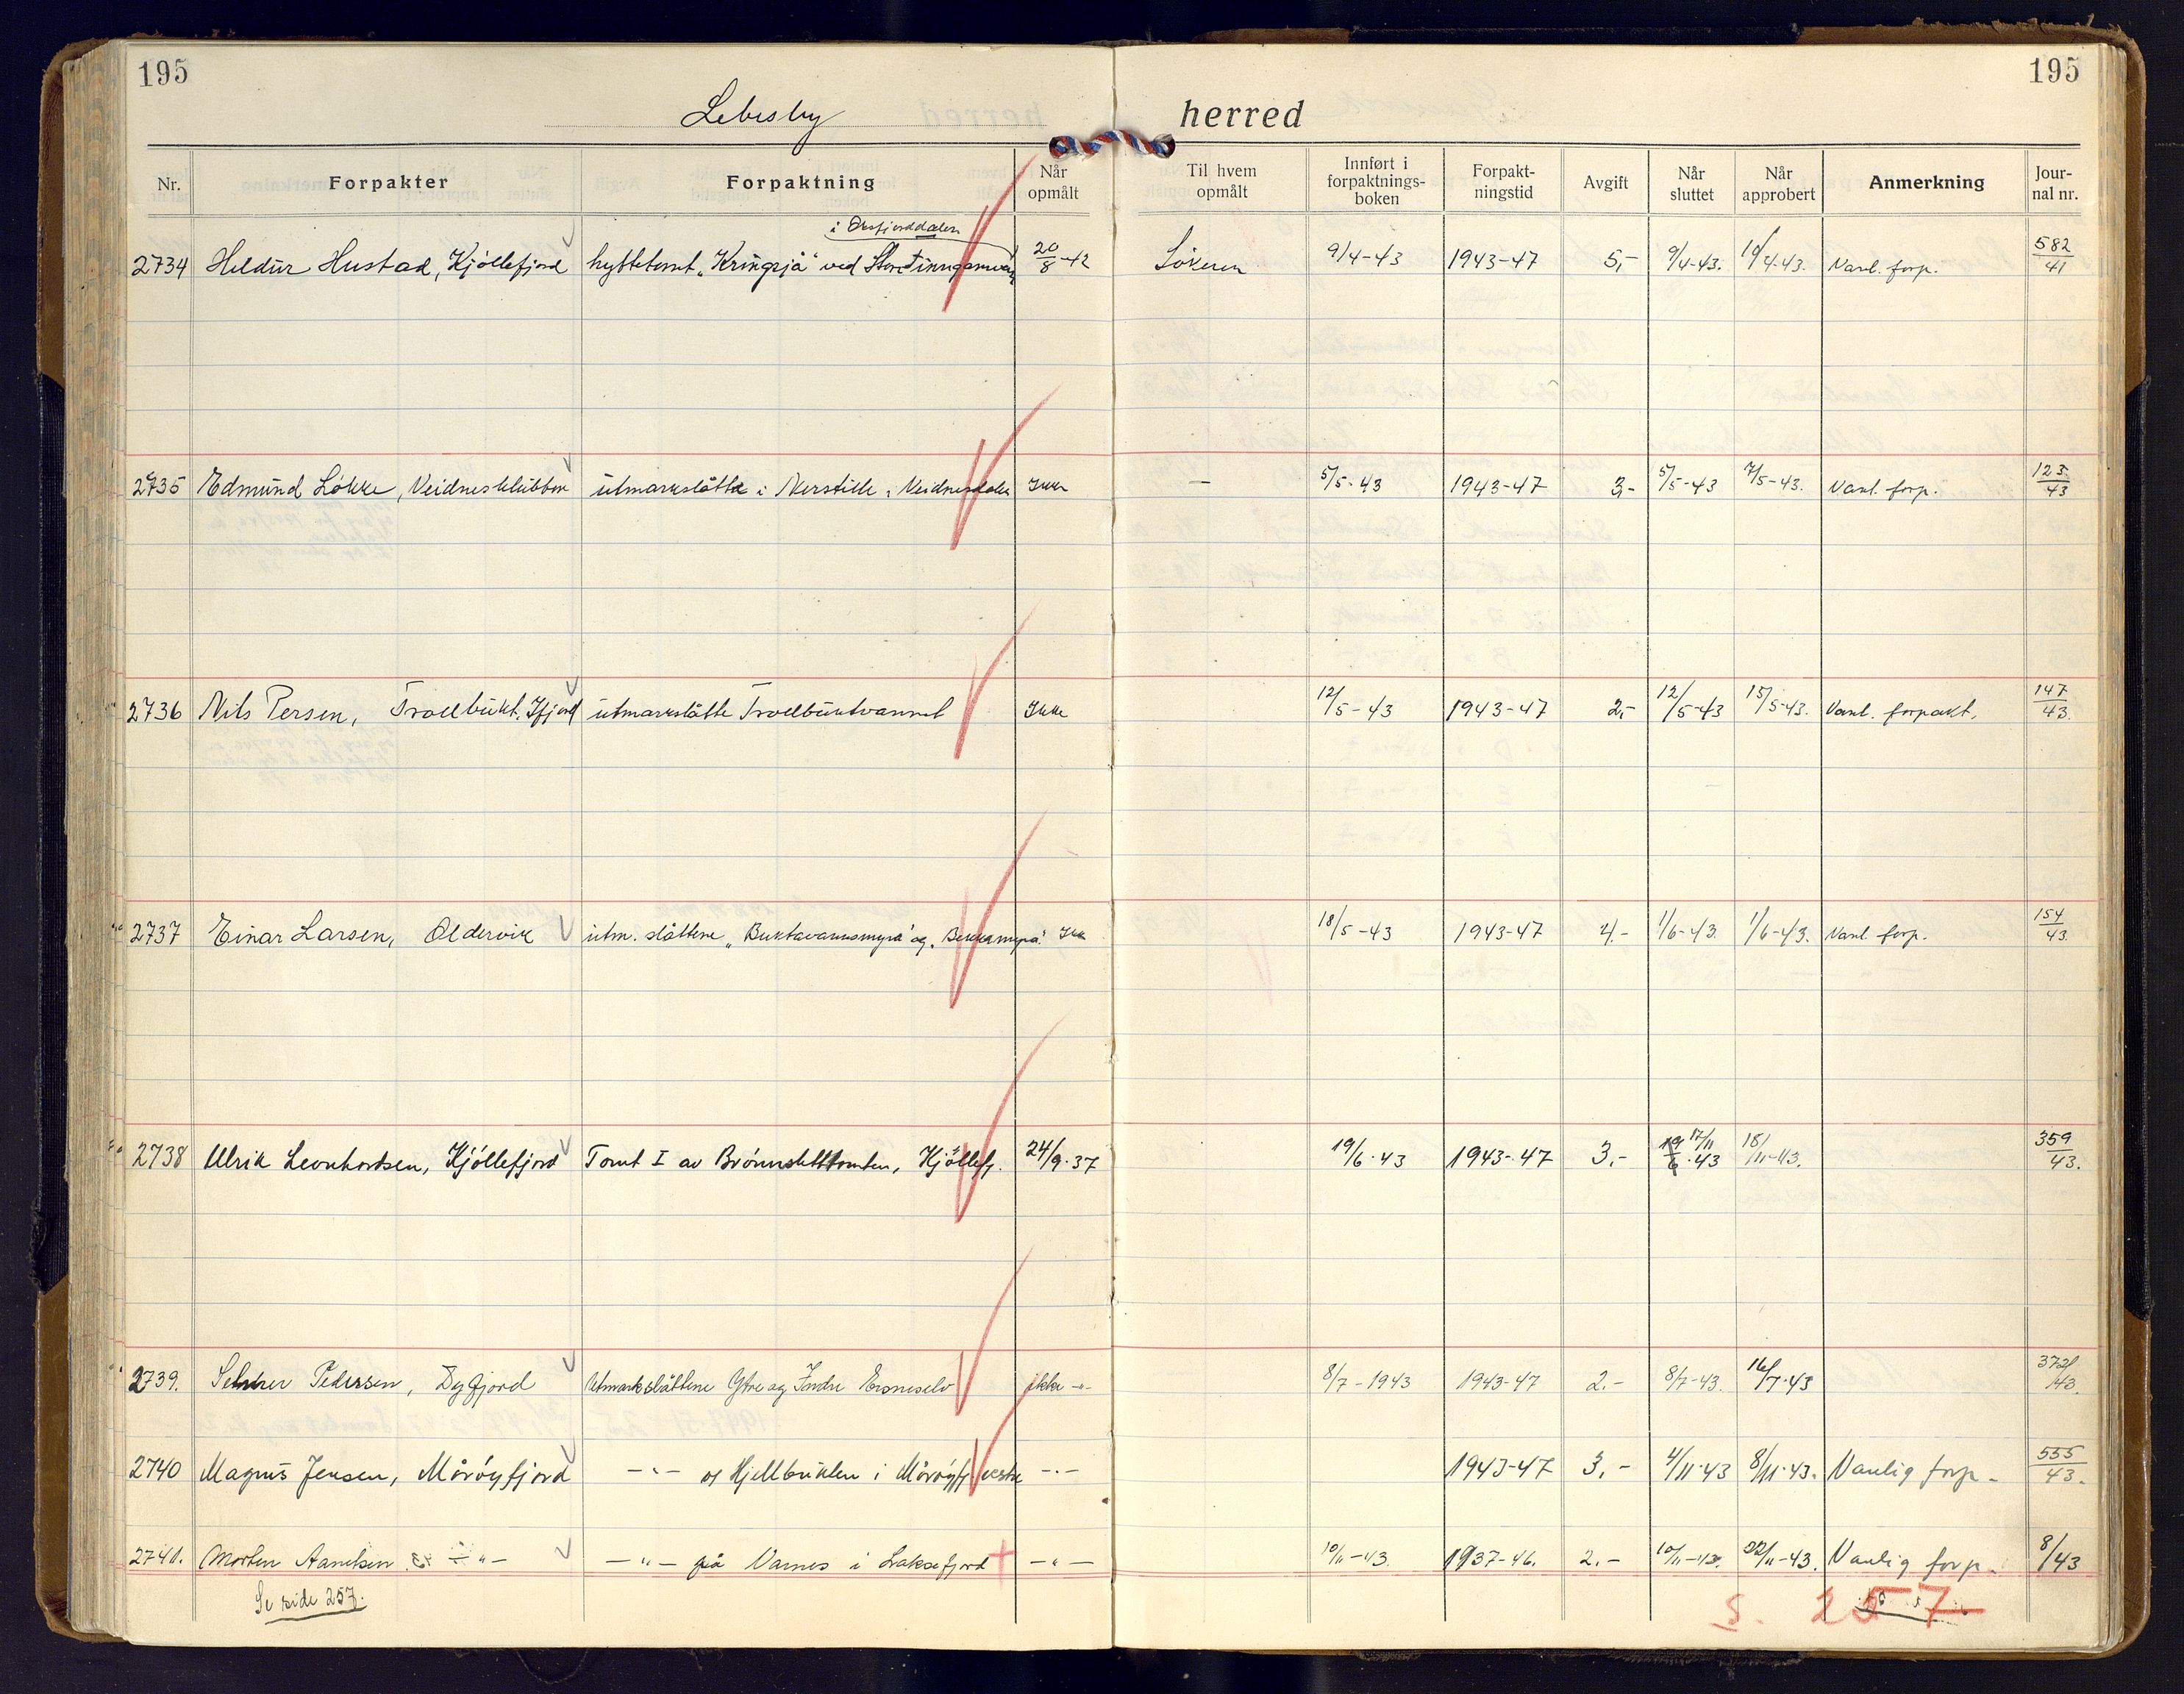 195
195
Lebesby herred
Nr. Forpakter Forpaktning Når opmålt Til hvem opmålt Innført i forpaktnings-boken Forpakt-ningstid Avgift Når sluttet Når approbert Anmerkning Jour-nal nr.
i
2734 Hildur Hustad, Kjöllefjord hyttetomt „Kringsjå" ved 20/8-42 Søkeren 9/4-43 1943-47 5,- 9/4-43. 4-43. Vanl. forp. 582/41
2735 Edmund Løkke, Veidnesklubben utmarkslåtte i Veidnesdalen Ikke — 5/5-43 1943-47 3,- 5/5-43 7/5-43. Vanl. forp. 123/43
2736 Nils Persen, Trollbukt, Ifjord utmarkslåtte Trollbuktvannet Ikke 12/5-43 1943-47 2,- 12/5-43 15/5-43. Vanl. forpakt. 147/43.
2737 Einar Larsen, Oldervik utm. slåttene „Buktavannsmyra" og Ikke 18/5-43 1943-47 4.- 1/6-43. 1/6-43. Vanl. forp. 154/43.
2738 Ulrik Leonhardsen, Kjöllefjord Tomt I av Kjöllefj. 24/9-37 19/6-43 1943-47 3.- 19/6 17/11-43 18/11-43. 359/43.
2739. Pedersen, Dyfjord Utmarkslåttene Ytre og Indre ikke -"- 8/7-1943 1943-47 2.- 8/7-43. 16/7-43 372/43.
2740 Magnus Jensen, Mårøyfjord -"- på i Mårøyfj. vestre -"- 1943-47 3.- 4/11-43 8/11-43. Vanlig forp. 555/43.
2741. Morten -"- -"- på Varnes i Laksefjord -"- 10/11-43. 1937-46. 2.- 10/11-43. 22/11-43. Vanlig forp. 8/43
Se side 257.
s. 257